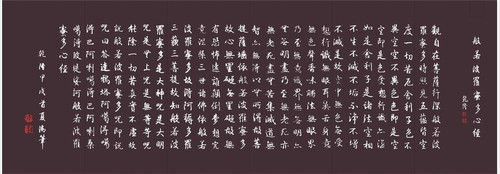 般若波羅蜜多心經
觀自在菩薩行深般若波
羅蜜多時照見五蘊皆空
度一切苦厄舍利子色不
異空空不異色色即是空
空即是色受想行識亦復
如是舍利子是諸法空相
不生不滅不垢不淨不增
不減是故空中無色無受
想行識無眼耳鼻舌身意
無色聲香味觸法無眼界
乃至無意識界無無明亦
無無明盡乃至無老死亦
無老死盡無苦集滅道無
智亦無得以無所得故菩
提薩埵依般若波羅蜜多
故心無罣礙無罣礙故無
有恐怖遠離顛倒夢想究
竟涅槃三世諸佛依般若
波羅蜜多故得阿耨多羅
三藐三菩提故知般若波
羅蜜多是大神咒是大明
咒是無上咒是無等等咒
能除一切苦真實不虛故
說般若波羅蜜多咒即說
咒曰揭諦揭
諦巴阿喇揭諦巴阿喇桑
揭諦般若波羅
蜜多心經
乾隆甲戌首夏筆